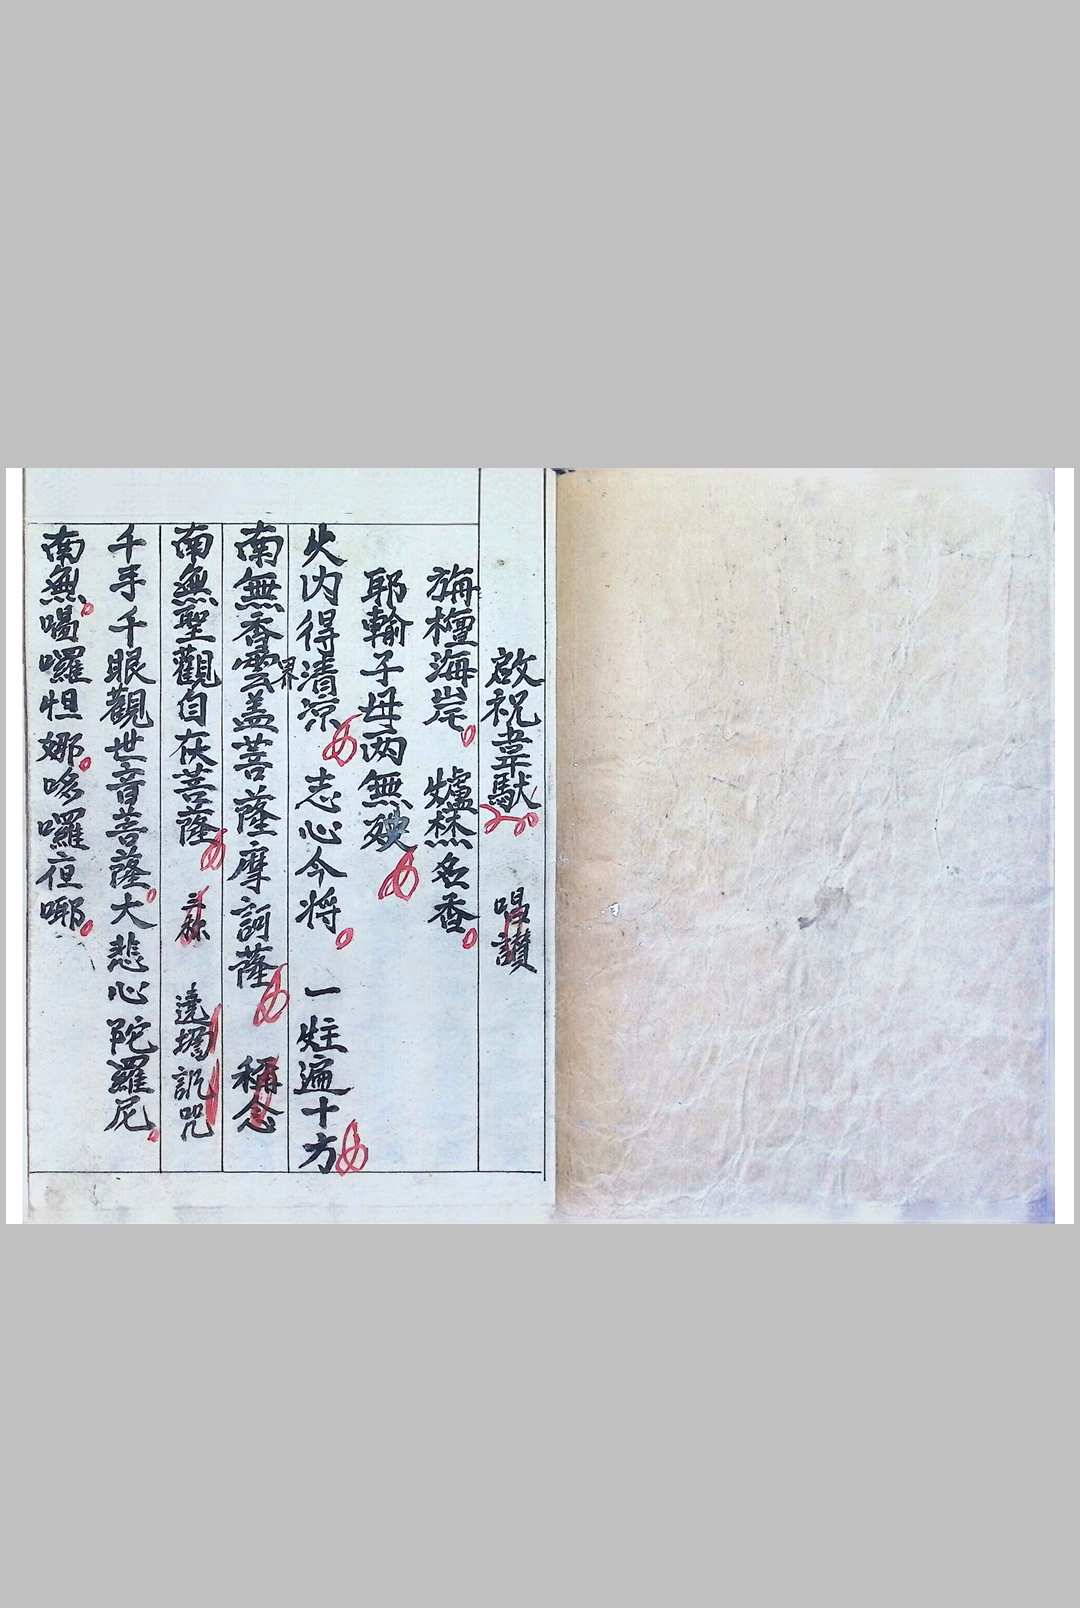 啟祝韋馱 唱讚
旃檀海岸 爐爇名香
耶輸子母两無殃
火内得清涼 志心今将 一炷遍十方
南無香雲盖菩薩摩訶薩 稱念
界
南無聖觀自在菩薩 三称 遶壇諷咒
千手千眼觀世音菩薩大悲心陀羅尼
南無喝囉怛娜哆囉夜㖿